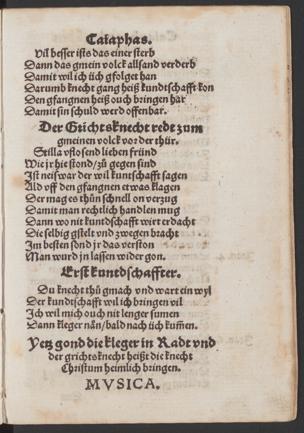 Caiaphas.
Vil besser ists das einer sterb
Dann das gmein volck allsand verderb
Damit wil ich üch gfolget han
Darumb knecht gang heiß kundtschafft kon
Den gfangnen heiß ouch bringen här
Damit sin schuld werd offenbar.
Der Grichtsknecht redt zum
gmeinen volck vor der thür.
Stilla vstosend lieben fründ
Wie jr hie stond/ zů gegen sind
Ist neiswar der wil kuntschafft sagen
Ald vff den gfangnen etwas klagen
Der mag es thůn schnell on verzug
Damit man rechtlich handlen mug
Dann wo nit kundtschafft wirt erdacht
Die selbig gstelt vnd zwegen bracht
Im besten sond jr das verston
Man wurd jn lassen wider gon.
Erst kuntdschaffter.
Du knecht thů gmach vnd wart ein wyl
Der kundtschafft wil ich bringen vil
Ich wil mich ouch nit lenger sumen
Dann kleger nån/ bald nach üch kum̃en.
Yetz gond die kleger in Radt vnd
der grichtsknecht heißt die knecht
Christum heimlich bringen.
MVSICA.